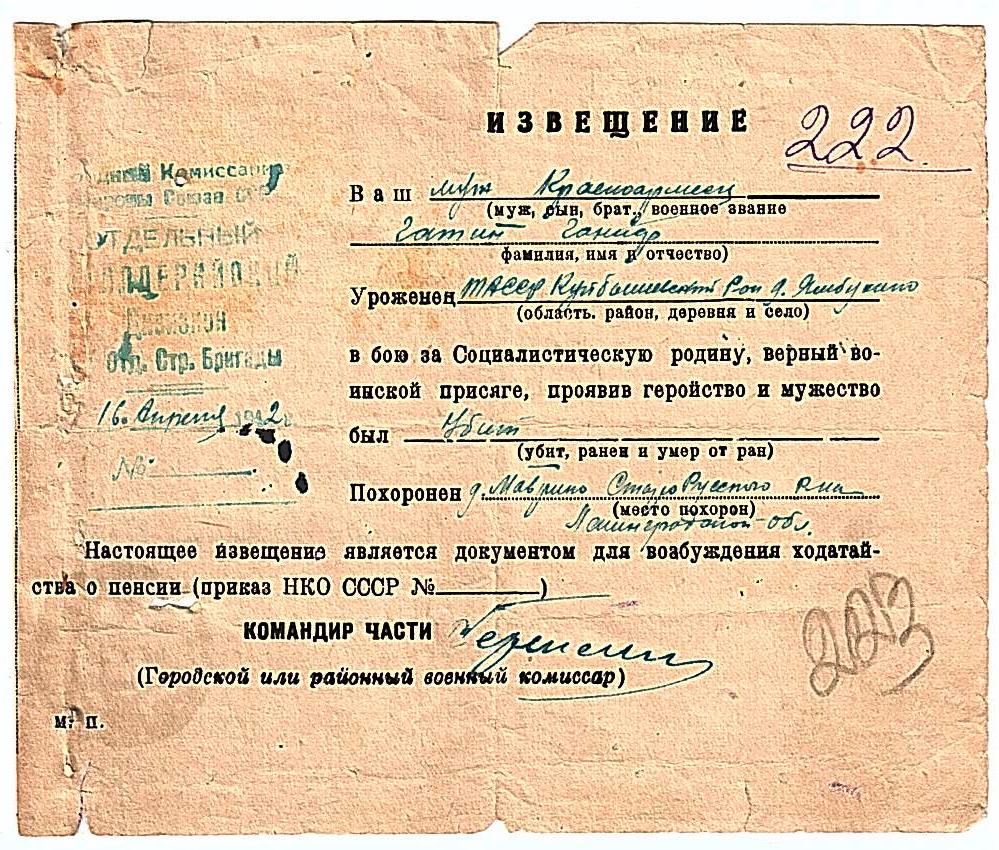 ИЗВЕЩЕНИЕ
222.
Народный Комиссариат
Обороны Союза ССР
ОТДЕЛЬНЫЙ
Дивизион
Отд. Стр. Бригады
16. Апреля 1942 г.
№
Ваш муж Красноармеец
(муж, сын, брат, военное звание
Гатин
фамилия, имя и отчество)
Уроженец ТАССР Куйбышевский Рон д. Ямбухино
(область. район, деревня и село)
в бою за Социалистическую родину, верный во-
инской присяге, проявив геройство и мужество
был Убит
(убит, ранен и умер от ран)
Похоронен д. Маврино Старо Русского р-на
(место похорон)
Ленинградской обл.
Настоящее извещение является документом для возбуждения ходатай-
ства о пенсии (приказ НКО СССР № )
КОМАНДИР ЧАСТИ
(Городской или районный военный комиссар)
м. п.